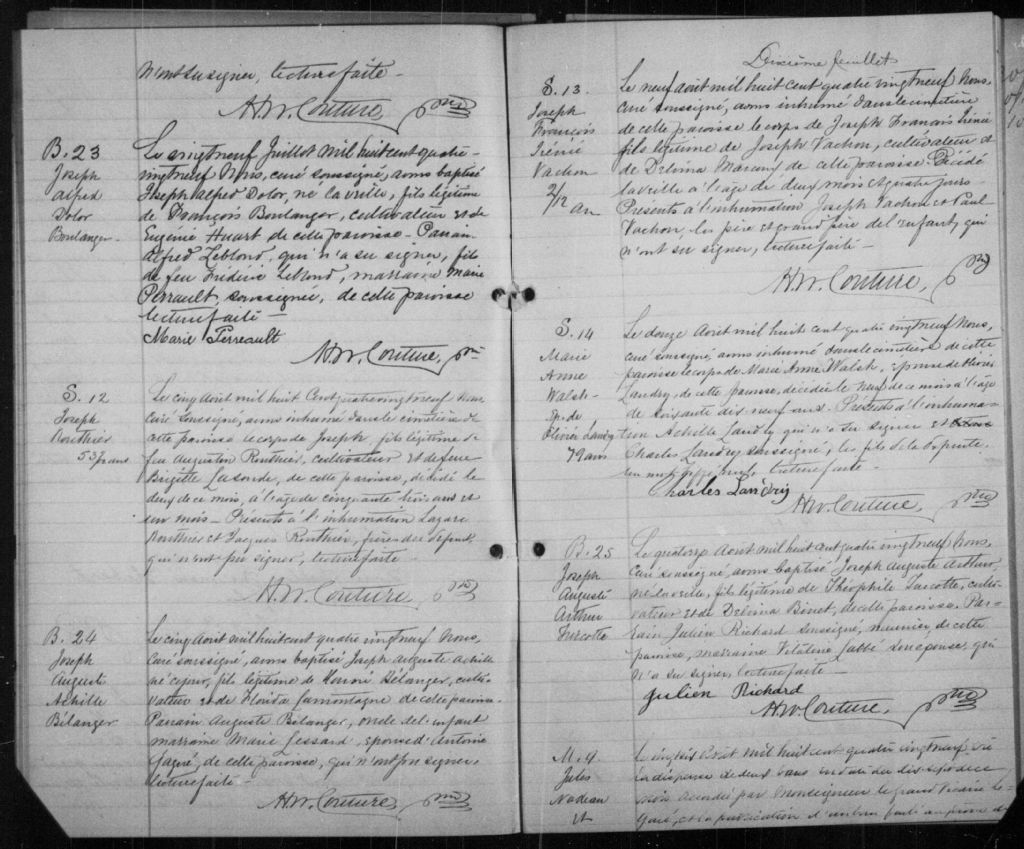 n'ont su signer, lecture faite -
H.W. Couture, ptre
B. 23
Joseph
Alfred
Dolor
Boulanger
Le vingt neuf Juillet mil huit cent quatre-
vingt neuf Nous, curé soussigné, avons baptisé
Joseph Alfred Dolor, né la veille, fils légitime
de François Boulanger, cultivateur et de
Eugénie Huart de cette paroisse - Parrain
Alfred Leblond, qui n'a su signer, fils
de feu Frédéric Leblond, marraine Marie
Perrault, soussignée, de cette paroisse
lecture faite -
Marie Perreault
H.W. Couture, ptre
S. 12
Joseph
Routhier
53 ans
Le cinq Aout mil huit Cent quatre vingt neuf Nous
Curé soussigné, avons inhumé dans le cimetière de
cette paroisse le corps de Joseph, fils légitime de
feu Augustin Routhier, cultivateur et de feue
Brigitte de cette paroisse, décédé le
deux de ce mois, à l'age de cinquante trois ans et
un mois - Présents à l'inhumation Lazare
Routhier et Jacques Routhier, frères du défunt
qui n'ont pu signer, lecture faite
H.W. Couture, ptre
B. 24
Joseph
Auguste
Achille
Bélanger
Le cinq Aout mil huit cent quatre vingt neuf Nous,
Curé soussigné, avons baptisé Joseph Auguste Achille
né ce jour, fils légitime de Honoré Bélanger, culti-
vateur et de Floida Lamontagne de cette paroisse
Parrain Auguste Bélanger, oncle de l'enfant
marraine Marie Lessard, épouse d'Antoine
de cette Paroisse, qui n'ont pu signer
lecture faite -
H.W. Couture, ptre
Dixième feuillet
S. 13.
Joseph
François
Irénée
Vachon
2/12 an
Le neuf aoit mil huit cent quatre vingt neuf Nous,
curé soussigné, avons inhumé dans le cimetière
de cette paroisse le corps de Joseph François Irénée
fils légitime de Joseph Vachon, cultivateur et
de Delvina de cette paroisse. Décédé
la veille à l'age de deux mois et quatre jours
Présents à l'inhumation Joseph Vachon et Paul
Vachon, les père et grand père de l'enfant, qui
n'ont su signer, lecture faite -
H.W. Couture, ptre
S. 14
Marie
Anne
Walsh
ép. de
Olivier Landry
79 ans
Le douze Aout mil huit cent quatre vingt neuf Nous,
curé soussigné, avons inhumé dans le cimetière de cette
paroisse le corps de Marie Anne Walsh, épouse de Olivier
Landry, de cette paroisse, décédée le neuf de ce mois à l'age
de soixante dix neuf ans. Présents à l'inhuma-
tion Achille Landry qui n'a su signer et
Charles Landry soussigné, les fils de la défunte.
un mot rayé nul, lecture faite -
Charles Landry
H.W. Couture, ptre
B. 25
Joseph
Auguste
Arthur
Turcotte
Le quatorze Aout mil huit cent quatre vingt neuf Nous,
Curé soussigné, avons baptisé Joseph Auguste Arthur,
né la veille, fils légitime de Théophile Turcotte, culti-
vateur et de Delvina Binet, de cette paroisse. Par-
rain Julien Richard soussigné, meunier, de cette
paroisse, marraine Vitaline Labbé son épouse, qui
n'a su signer, lecture faite -
Julien Richard
H.W. Couture, ptre
M. 9
Jules
Nadeau
et
Le Aout mil huit cent quatre vingt neuf Vu
la dispense de deux bans
accordée par Monseigneur le grand Vicaire Le-
garé, et la publication d'un ban faite au prône de